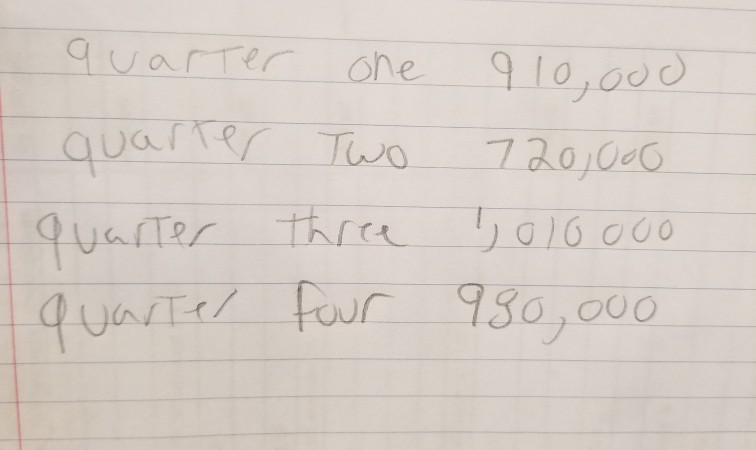 quarter one 910,000
quarter Two 720,000
quarter three 1,010 000
quarter four 980,000